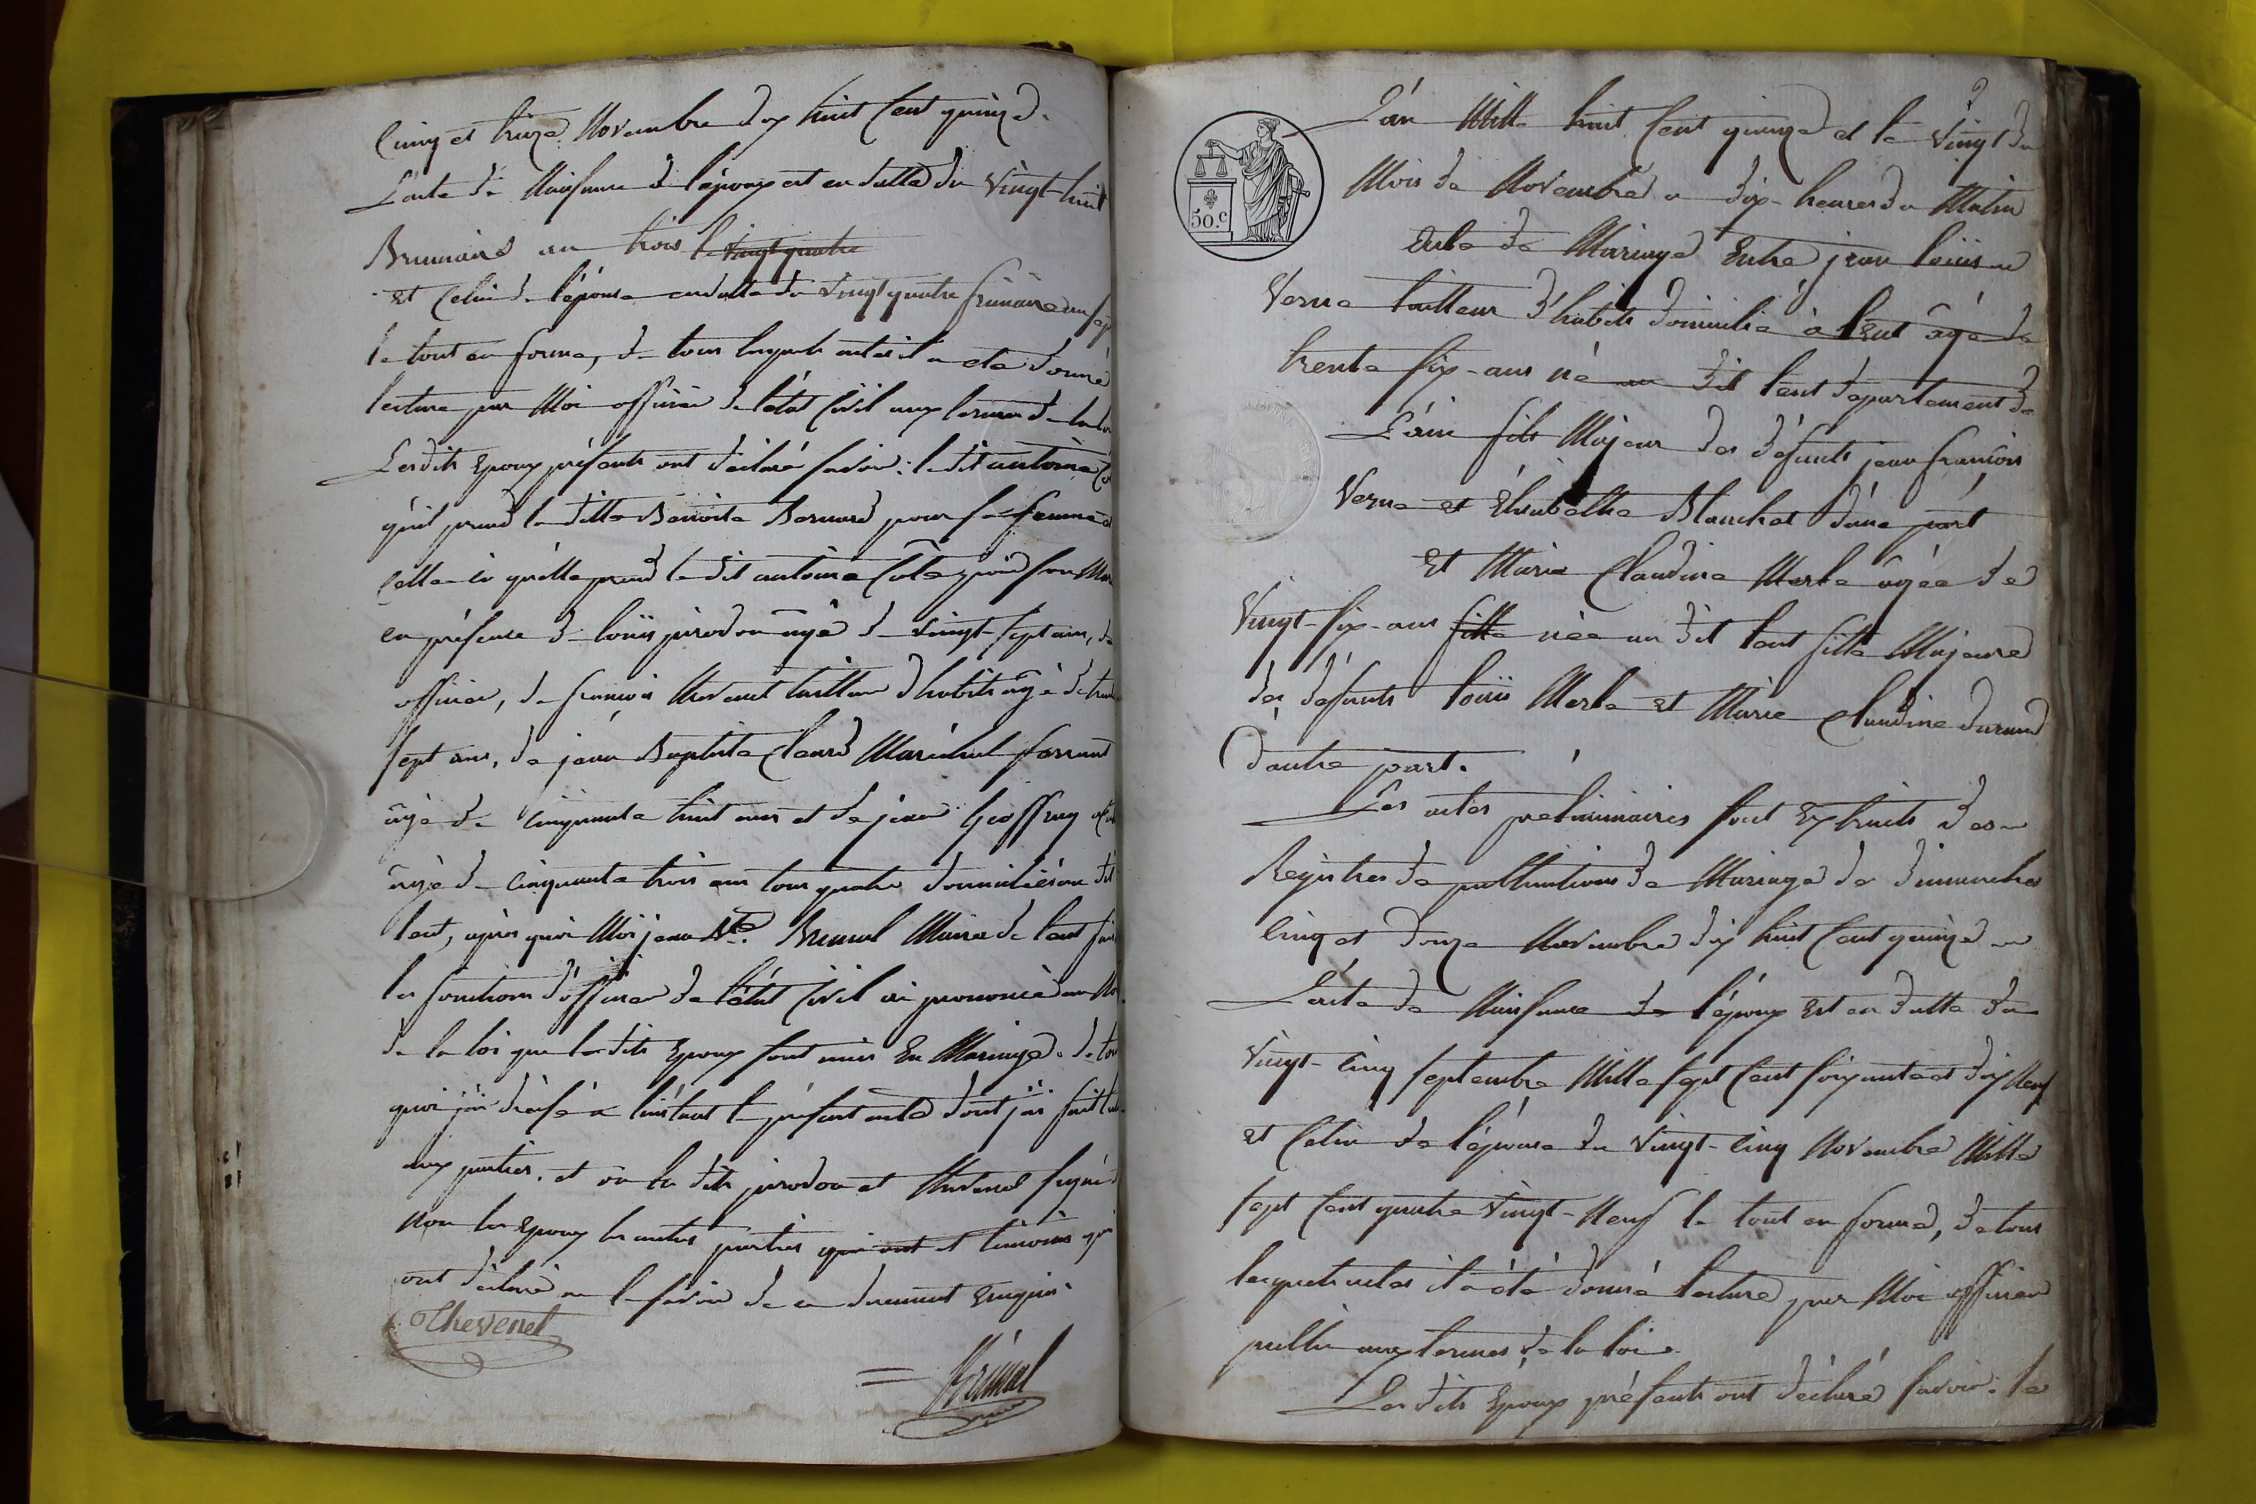 Cinq et Treize Novembre dix huit Cent quinze.
L'acte de Naissance de l'époux est en datte du Vingt-huit
Brumaire an trois le vingt quatre
et Celui de l'épouse en datte du Vingt quatre frimaire an sept
le tout en forme, de tous lesquels actes il a été donné
lecture par Moi officier de l'état Civil aux termes de la loi
Les dits Epoux présents ont déclaré savoir: le dit antoine
qu'il prend la ditte Benoite Bernard pour sa femme et
Celle-ci qu'elle prend le dit antoine Cote pour son Mari
en présence de louis jurodon agé de vingt-sept ans, de
officier, de françois thevenet tailleur d'habits âgé de trente
sept ans, de jean Baptiste Clerd Maréchal ferrant
âgé de Cinquante huit ans et de jean Geoffray
âgé de Cinquante trois ans tous quatre domiciliés au dit
lent, après quoi Moi jean Bte. Brunal Maire de lent fais
les fonctions d'officier de l'état Civil ai prononcé au Nom
de la loi que les dits Epoux sont unis En Mariage. de tout
quoi j'ai dressé a l'instant le présent acte dont j'ai fait lecture
aux parties. et on les dits jurodon et thevenet signé
non les Epoux les autres parties qui ont et temoins qui
ont déclaré ne le savoir de ce duement Enquis.
Thevenet
Brunal
L'an Mille huit Cent quinze et le Vingt du
Mois de Novembre a dix-heures du Matin
acte de Mariage Entre jean louis
Verne tailleur d'habits domicilié à lent âgé de
trente six-ans né au dit lent département de
L'ain fils Majeur des défunts jean françois
Verne et Elisabethe Blanchet d'une part
Et Marie Claudine Merle âgée de
Vingt-six-ans fille née au dit lent fille Majeure
des défunts louis Merle et Marie Claudine durand
D'autre part.
Les actes préliminaires sont Extraits des
Registres de publications de Mariage des dimanches
Cinq et douze Novembre dix huit Cent quinze
L'acte de Naissance de l'époux Est en datte du
Vingt-Cinq septembre Mille sept Cent soixante et dix Neuf
et Celui de l'épouse du Vingt-Cinq Novembre Mille
sept Cent quatre Vingt-Neuf le tout en forme, de tous
lesquels actes il a été donné lecture par Moi officier
public aux termes de la loi.
Les dits Epoux présents ont déclaré savoir: le
50.c